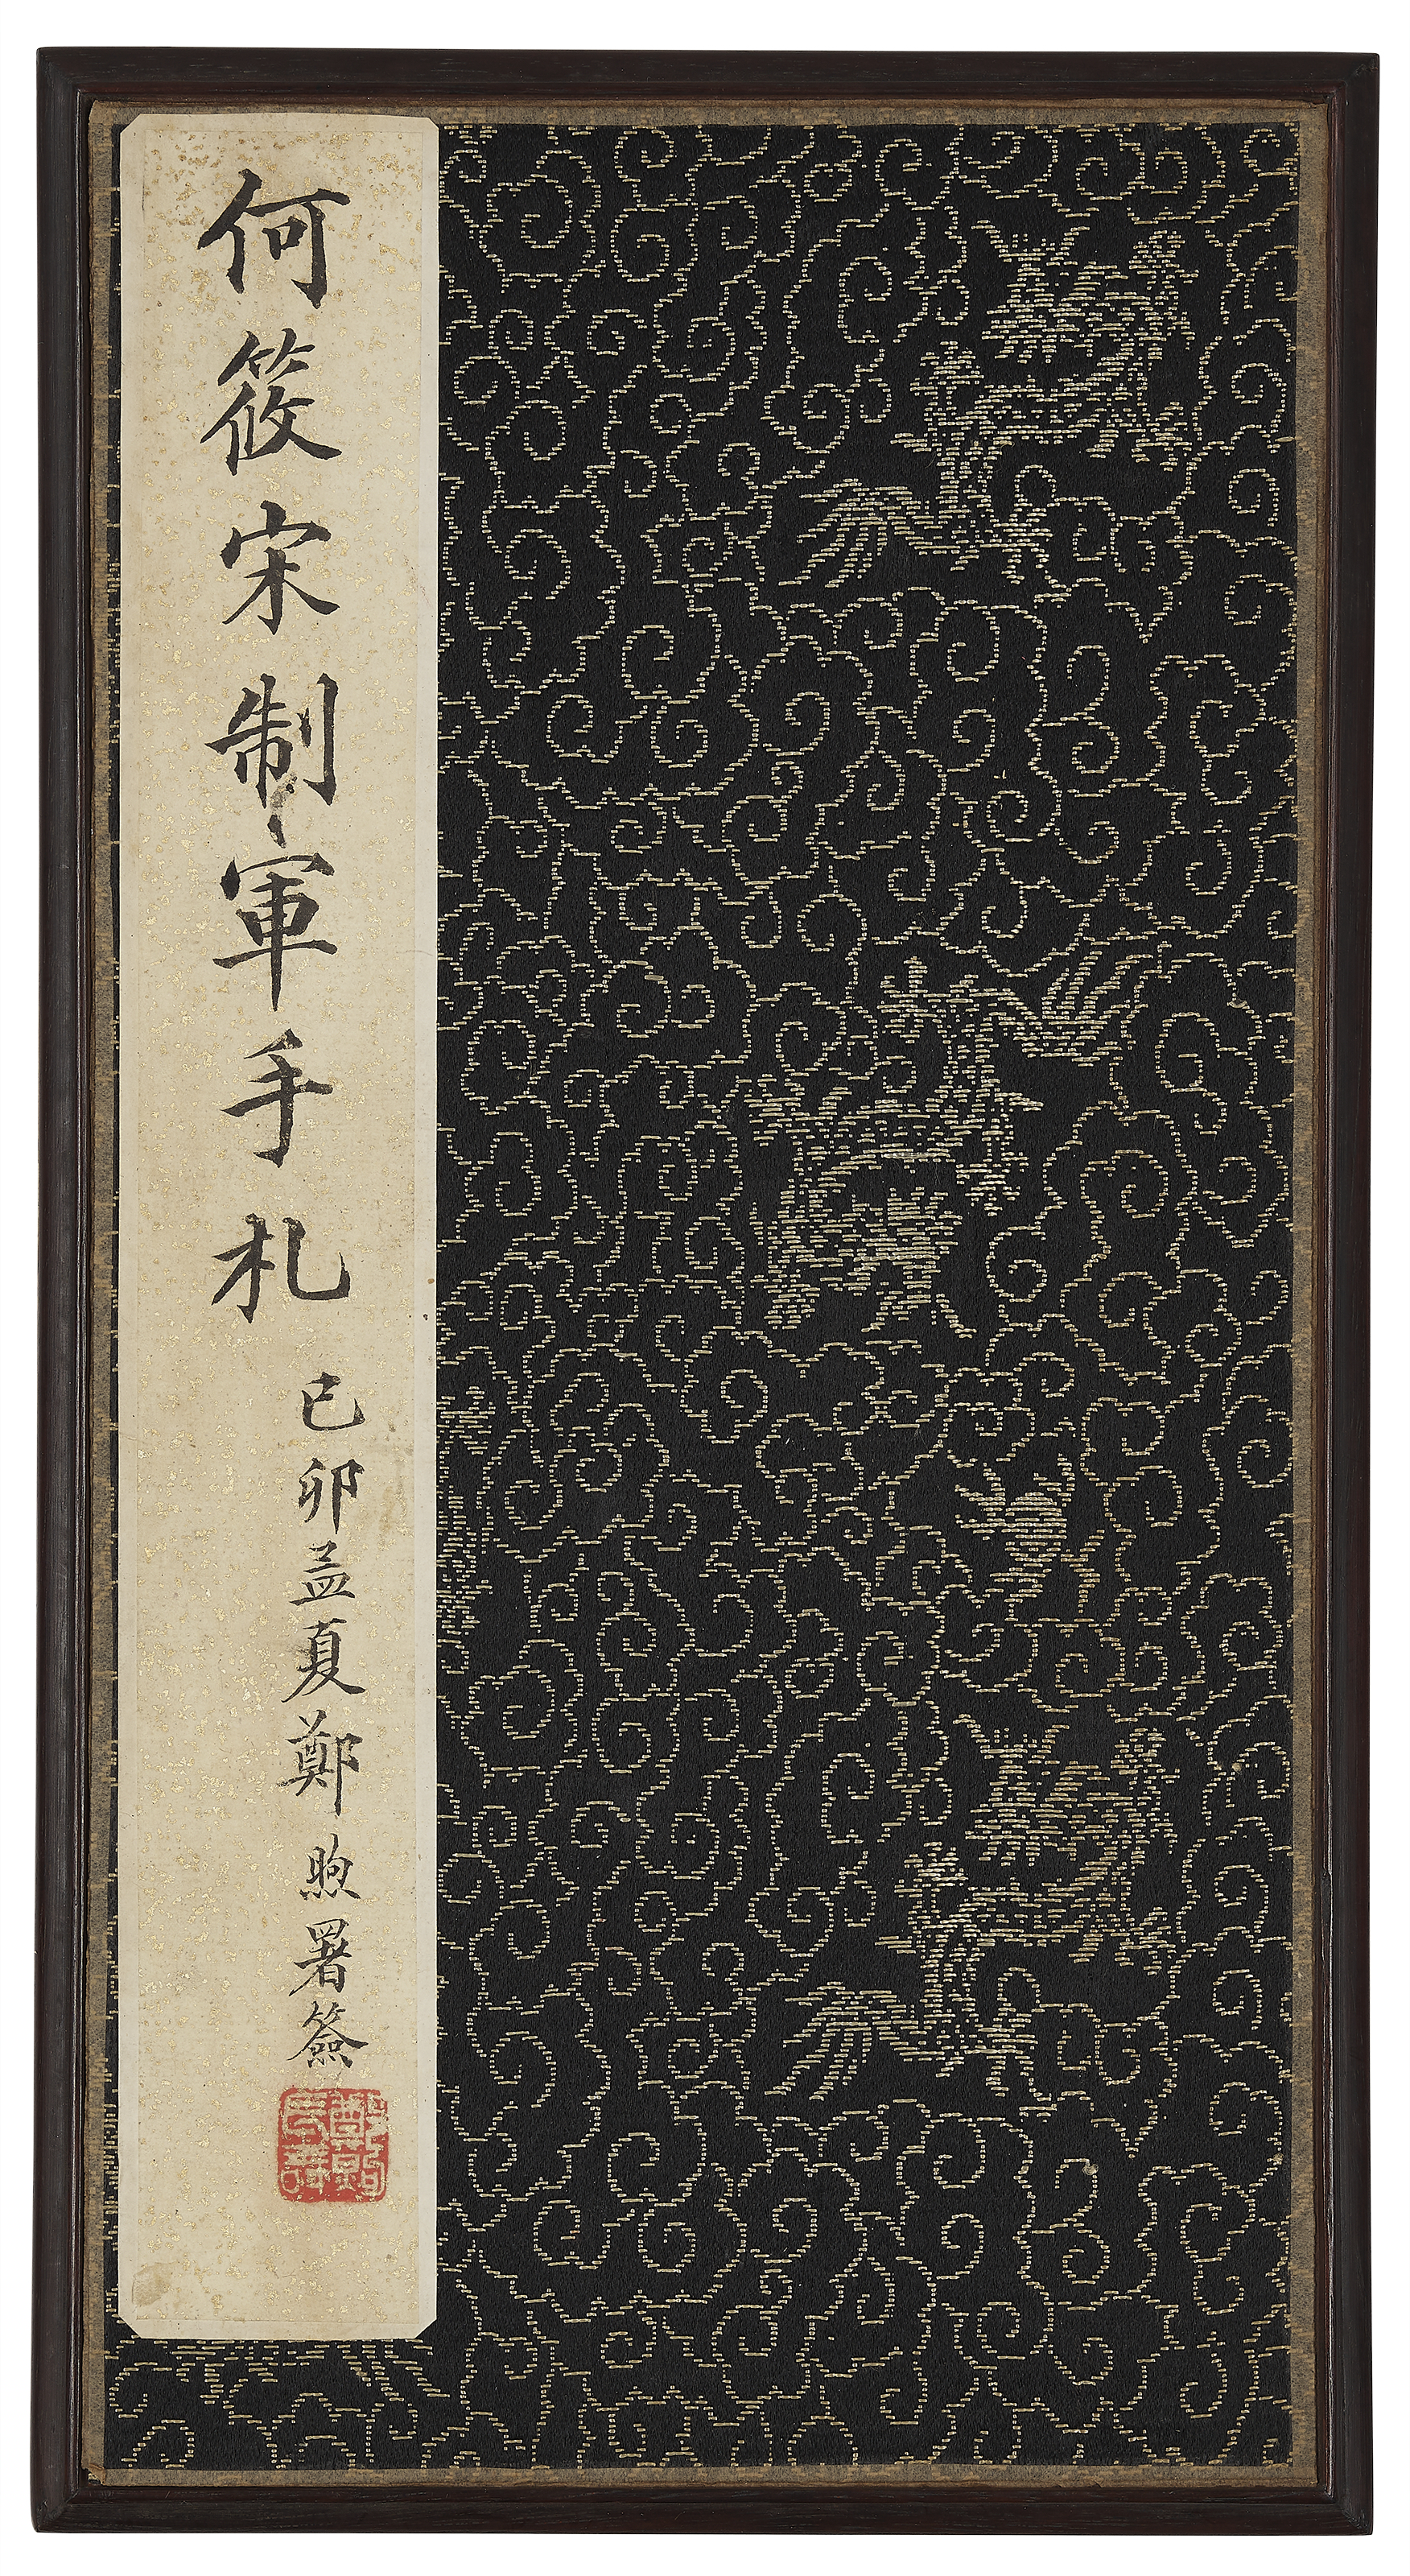 何筱宋制軍手札
己卯孟夏鄭煦署簽